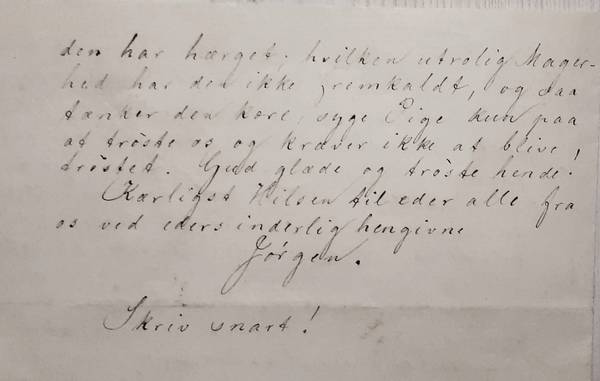 den har hærget; hvilken utrolig Mager-
hed har den ikke fremkaldt, og saa
tænker den kære, syge Pige kun paa
at trøste os og kræver ikke at blive
trøstet. Gud glæde og trøste hende!
Kærligst Hilsen til eder alle fra
os ved eders inderlig hengivne
Jörgen.
Skriv snart!